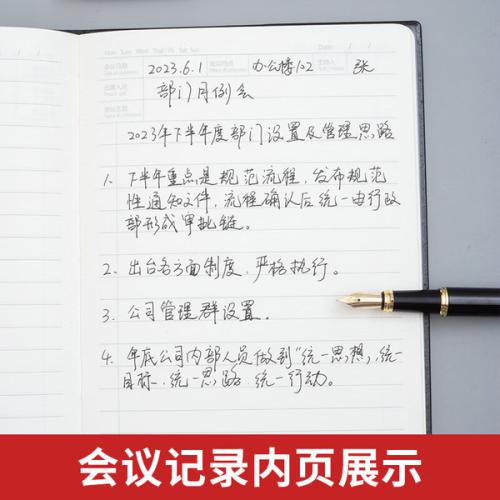 Mon Tues Wed Thur Fri Sat Sun
Date / /
会议日期 2023.6.1 会议地点 办公楼102 主持人 张
出席人员 部门月例会
会议主题
2023年下半年度部门设置及管理思路
1. 下半年重点是规范流程,发布规范
性通知文件,流程确认后统一由行政
部形成审批链。
2. 出台各方面制度,严格执行。
3. 公司管理群设置。
4. 年底公司内部人员做到“统一思想,统一
目标.统一思路.统一行动。
会议记录内页展示